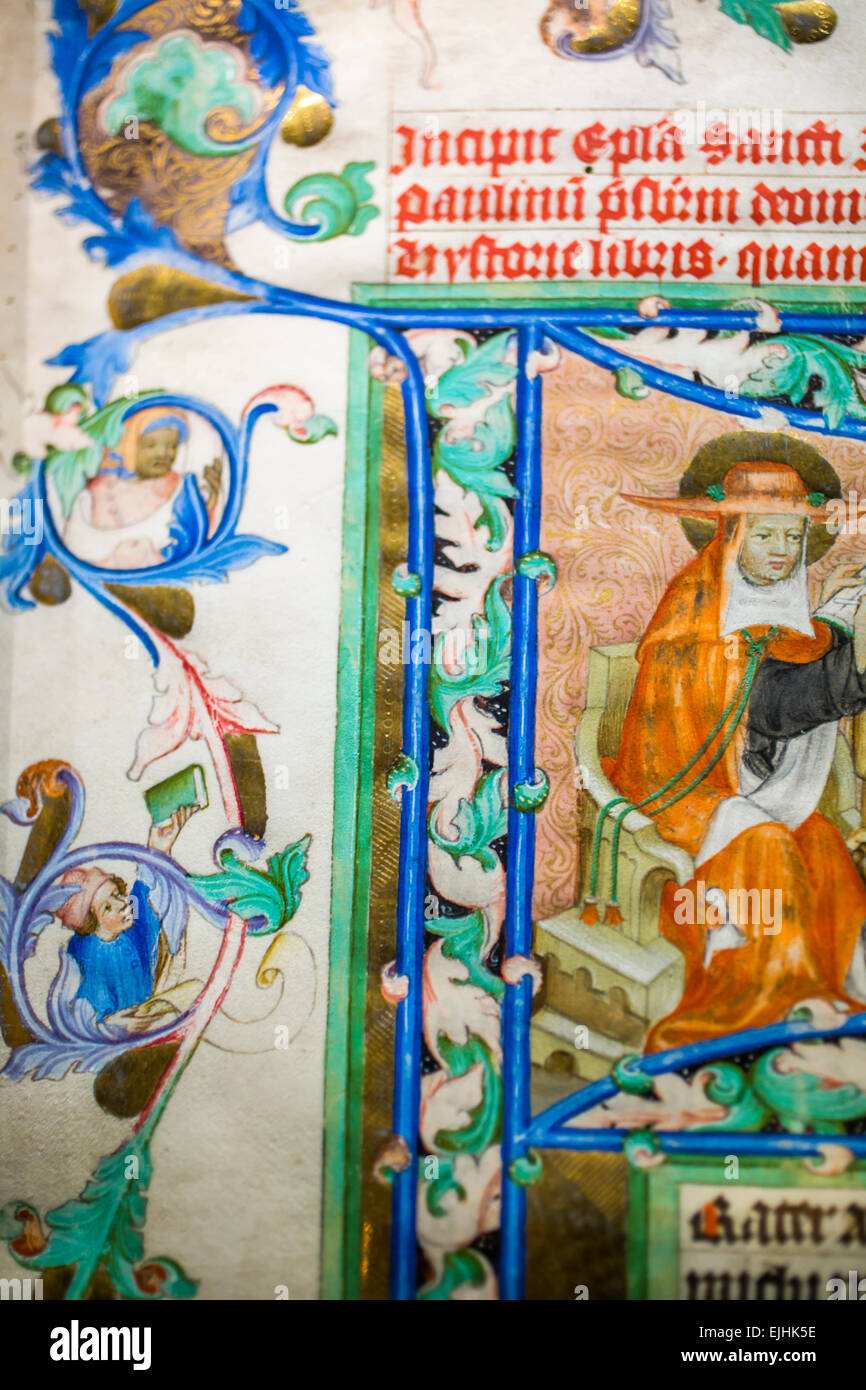 Incipit Epl̃a Sancti
Paulinũ p̃sb̃irm
hystorie libris · quam
Frater a
michi
alamy
Image ID: EJHK5E
www.alamy.com